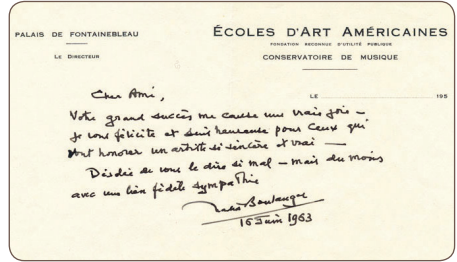 PALAIS DE FONTAINEBLEAU
LE DIRECTEUR
ÉCOLES D'ART AMÉRICAINES
FONDATION RECONNUE D'UTILITÉ PUBLIQUE
CONSERVATOIRE DE MUSIQUE
LE 195
Cher Ami,
Votre grand succès me cause une vraie joie –
Je vous félicite et suis heureuse pour ceux qui
vont honorer un artiste si sincère et vrai –
Désolée de vous le dire si mal – mais du moins
avec une bien fidèle sympathie
Nadia Boulanger
16 Juin 1963